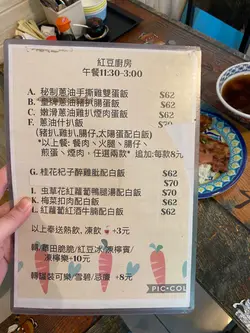 紅豆廚房
午餐11:30-3:00
A. 秘制蔥油手撕雞雙蛋飯 $62
B. 皇牌蔥油豬扒腸仔蛋飯 $62
C. 嫩滑蔥油雞扒煙肉蛋飯 $62
F. 蔥油什扒飯 $70
(豬扒,雞扒,腸仔,太陽蛋配白飯)
*以上餐: 餐肉丶火腿丶腸仔丶
煎蛋丶煙肉，任選兩款* 追加:每款8元
G. 桂花杞子醉雞髀配白飯 $62
$70
I. 虫草花紅蘿蔔鴨腿湯配白飯 $70
K. 梅菜扣肉配白飯 $62
L. 紅蘿蔔紅酒牛腩配白飯 $62
以上奉送熱飲，凍飲 +3元
轉:脆脆/紅豆冰/凍檸賓/
凍檸樂+10元
轉罐裝可樂/雪碧/忌廉 +8元
PIC•COL